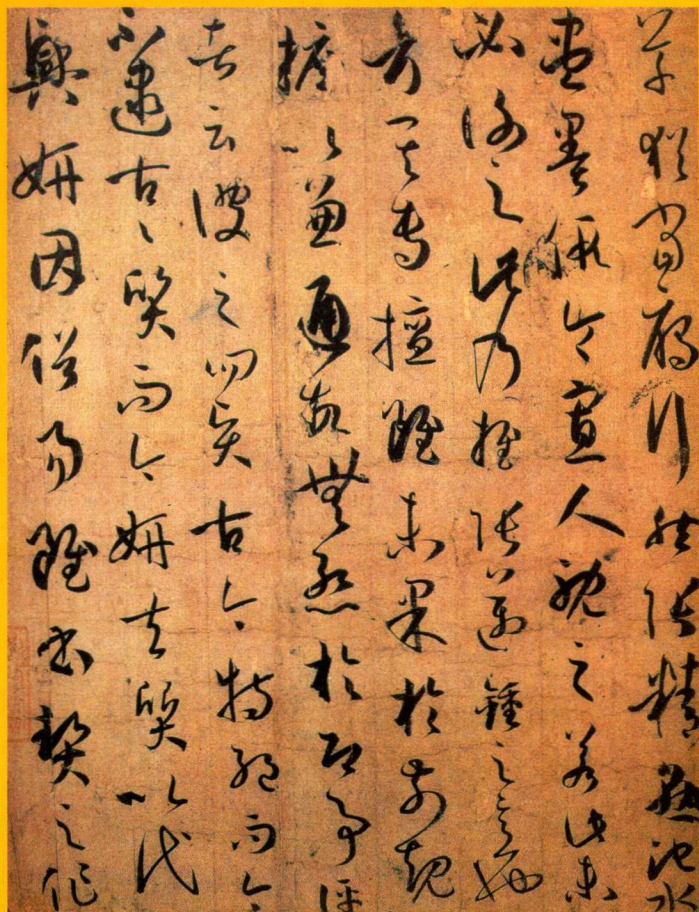 草猶當鴈行然張精熟池水
盡墨假令寡人耽之若此未
必謝之此乃推張邁鍾之意也
考其專擅雖未果於前規
摭以兼通故無慚於即事評
者云彼之四賢古今特絕而今
不逮古〻質而今妍夫質以代
興妍因俗易雖書契之作